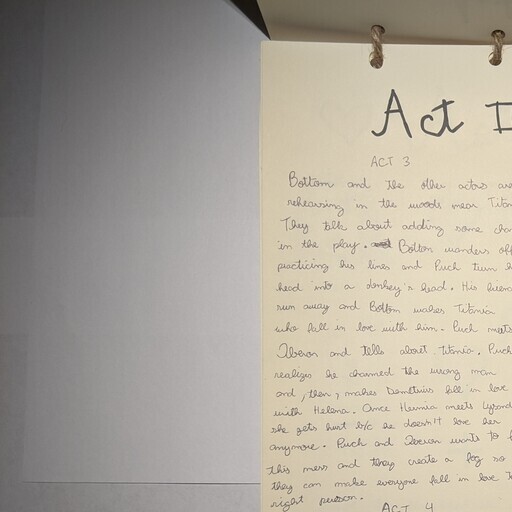 Act I
ACT 3
Bottom and the other actors are
rehearsing in the woods near Titan
They talk about adding some cha
in the play. Bottom wanders off
practicing his lines and Puck turn h
head into a donkey's head. His friend
run away and Bottom wakes Titania
who fall in love with him. Puck meets
Oberon and tells about Titania. Puck
realizes he charmed the wrong man
and, then, makes Demetrius fall in love
with Helena. Once Hermia meets Lysand
she gets hurt b/c he doesn't love her
anymore. Puck and Oberon wants to f
this mess and they create a fog so
they can make everyone fall in love
right person.
ACT 4